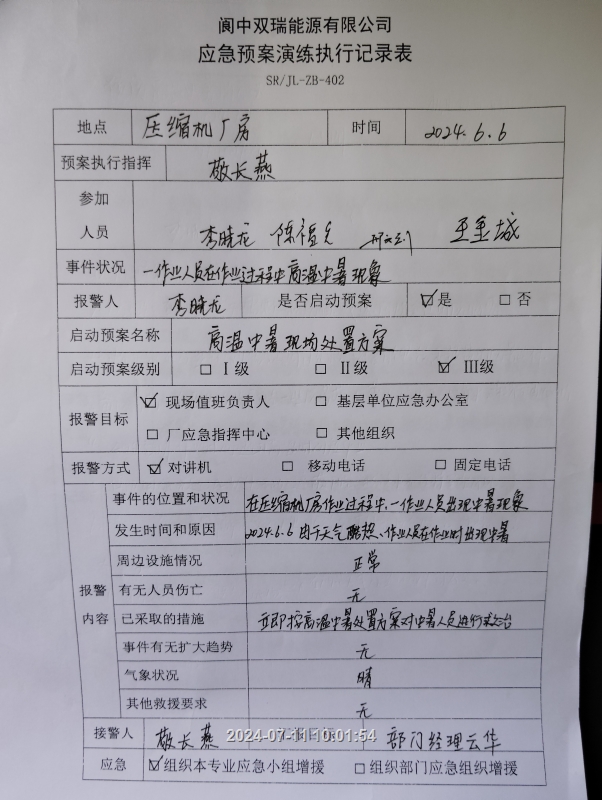 阆中双瑞能源有限公司
应急预案演练执行记录表
SR/JL-ZB-402
地点 压缩机厂房 时间 2024.6.6
预案执行指挥 敬长燕
参加
人员 李晓龙 陈福 王金城
事件状况 一作业人员在作业过程中高温中暑现象
报警人 李晓龙 是否启动预案 ☑是 □否
启动预案名称 高温中暑现场处置方案
启动预案级别 □Ⅰ级 □Ⅱ级 ☑Ⅲ级
报警目标 ☑现场值班负责人 □基层单位应急办公室
□厂应急指挥中心 □其他组织
报警方式 ☑对讲机 □移动电话 □固定电话
报警内容
事件的位置和状况 在压缩机厂房作业过程中,一作业人员出现中暑现象
发生时间和原因 2024.6.6 由于天气酷热、作业人员在作业时出现中暑
周边设施情况 正常
有无人员伤亡 无
已采取的措施 立即按高温中暑处置方案对中暑人员进行救治
事件有无扩大趋势 无
气象状况 晴
其他救援要求 无
接警人 敬长燕 部门经理云华
2024-07-11 10:01:54
应急 ☑组织本专业应急小组增援 □组织部门应急组织增援